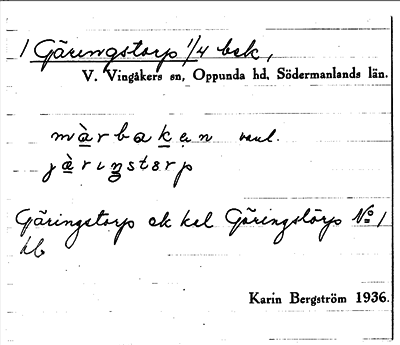 1 Gäringstorp 1/4 bsk,
V. Vingåkers sn, Oppunda hd, Södermanlands län.
mὰrbakan vanl.
jὰriŋstɔrp
Gäringstorp ek kal Gäringstorp No 1
hb
Karin Bergström 1936.